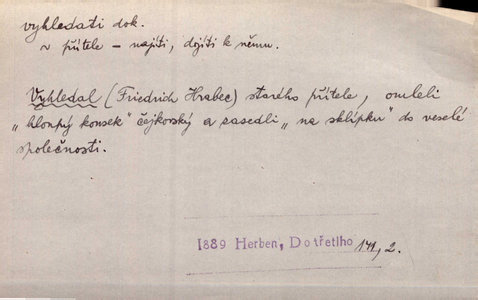 vyhledati dok.
v přítele – najíti, dojíti k němu.
Vyhledal (Friedrich Hrabec) starého přítele, omleli
„hloupý konsek" čejkovský a zasedli „na sklípku" do veselé
společnosti.
1889 Herben, Do třetího 141, 2.